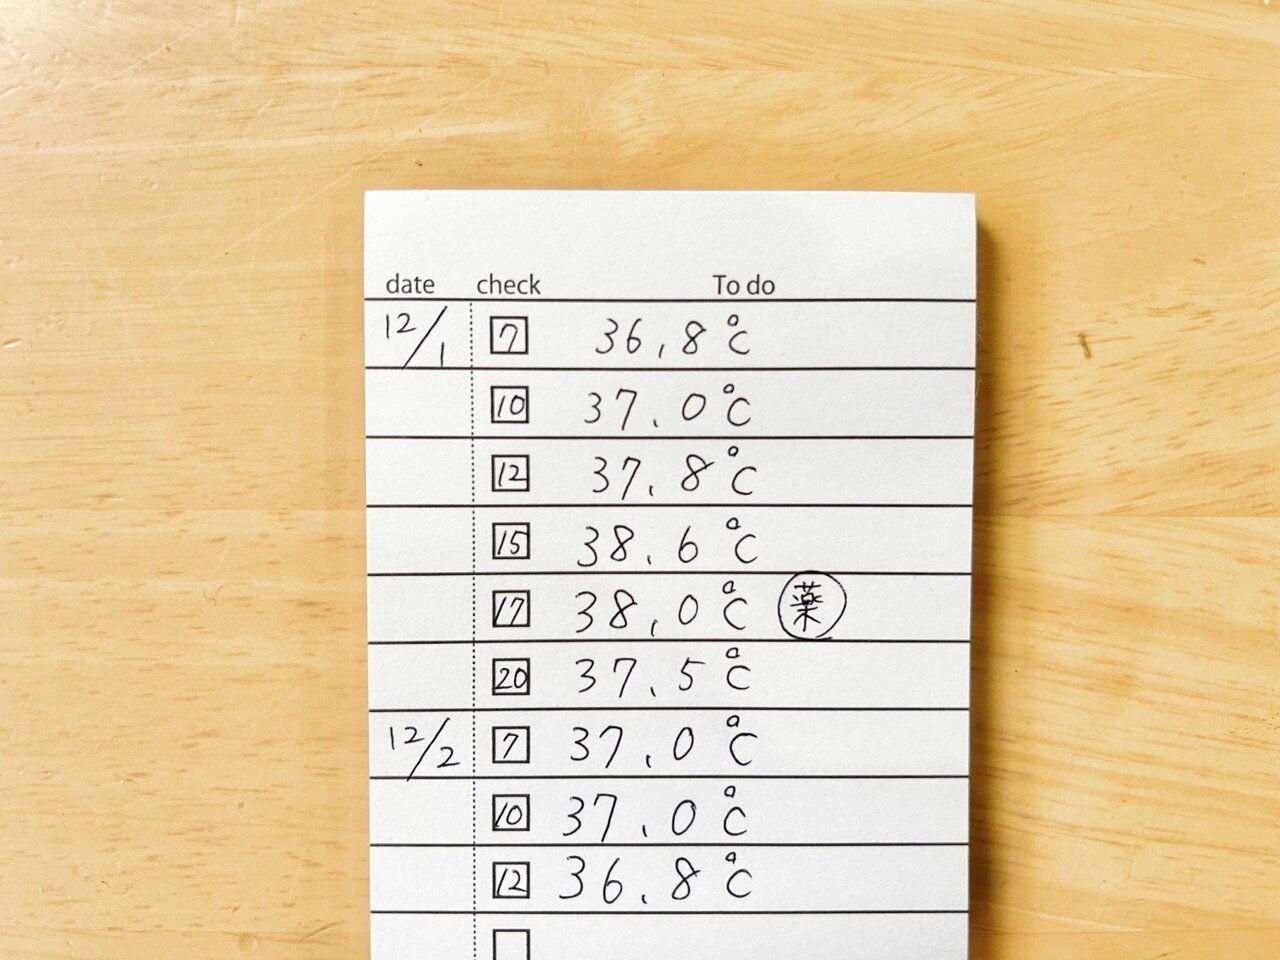 date check To do
12/1 7 36.8℃
10 37.0℃
12 37.8℃
15 38.6℃
17 38.0℃ 薬
20 37.5℃
12/2 7 37.0℃
10 37.0℃
12 36.8℃